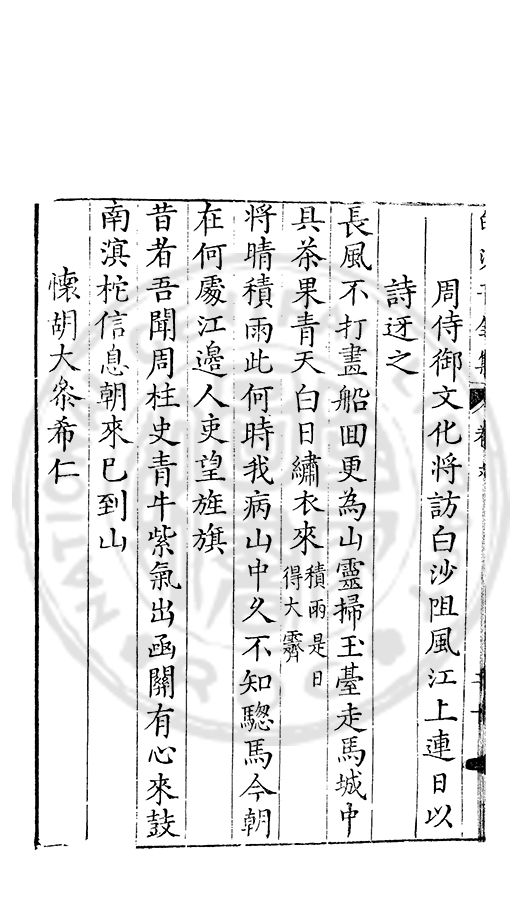 周侍御文化將訪白沙阻風江上連日以
詩迓之
長風不打畫船囬更為山靈掃玉臺走馬城中
具茶果青天白日繡衣來積雨是日
得大霽
將晴積雨此何時我病山中久不知驄馬今朝
在何處江邊人吏望旌旗
昔者吾聞周柱史青牛紫氣出函關有心來鼓
南溟柁信息朝來已到山
懷胡大叅希仁